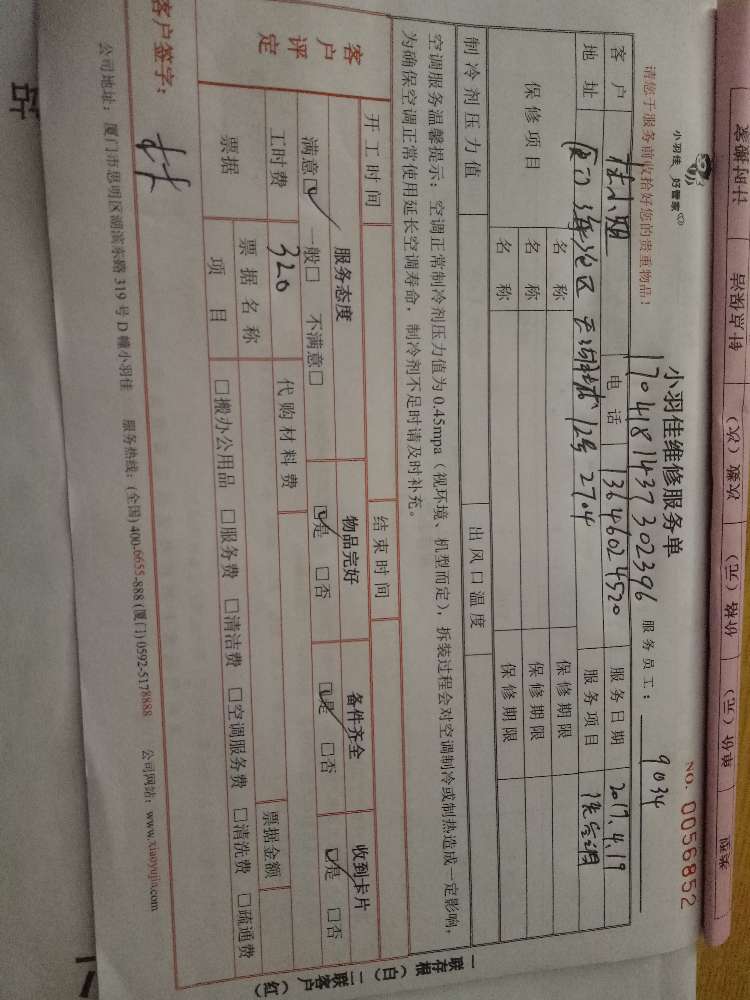 小羽佳 好管家
请您于服务前收拾好您的贵重物品！
小羽佳维修服务单
NO. 0056852
1704181437302396
服务员工： 9034
客户 杜小姐 电话 13646024520 服务日期 2017.4.19
地址 厦门 海沧区 天湖城 12号 2704 服务项目
保修项目 名称 保修期限
名称 保修期限
名称 保修期限
制冷剂压力值 出风口温度
空调服务温馨提示：空调正常制冷剂压力值为0.45mpa（视环境、机型而定），拆装过程会对空调制冷或制热造成一定影响，
为确保空调正常使用延长空调寿命，制冷剂不足时请及时补充。
开工时间 结束时间
客户评定 服务态度 物品完好 备件齐全 收到卡片
满意☑ 一般□ 不满意□ ☑是 □否 ☑是 □否 ☑是 □否
工时费 320 代购材料费
票据 票据名称 票据金额
项目 □搬办公用品 □服务费 □清洁费 □空调服务费 □清洗费 □疏通费
客户签字：
公司地址：厦门市思明区湖滨东路319号D幢小羽佳 服务热线：(全国)400-6655-888(厦门)0592-5178888 公司网站：www.xiaoyujia.com
一联存根（白）二联客户（红）
计时确客
针当做兵
次数（次）
价格（元）
单价（元）